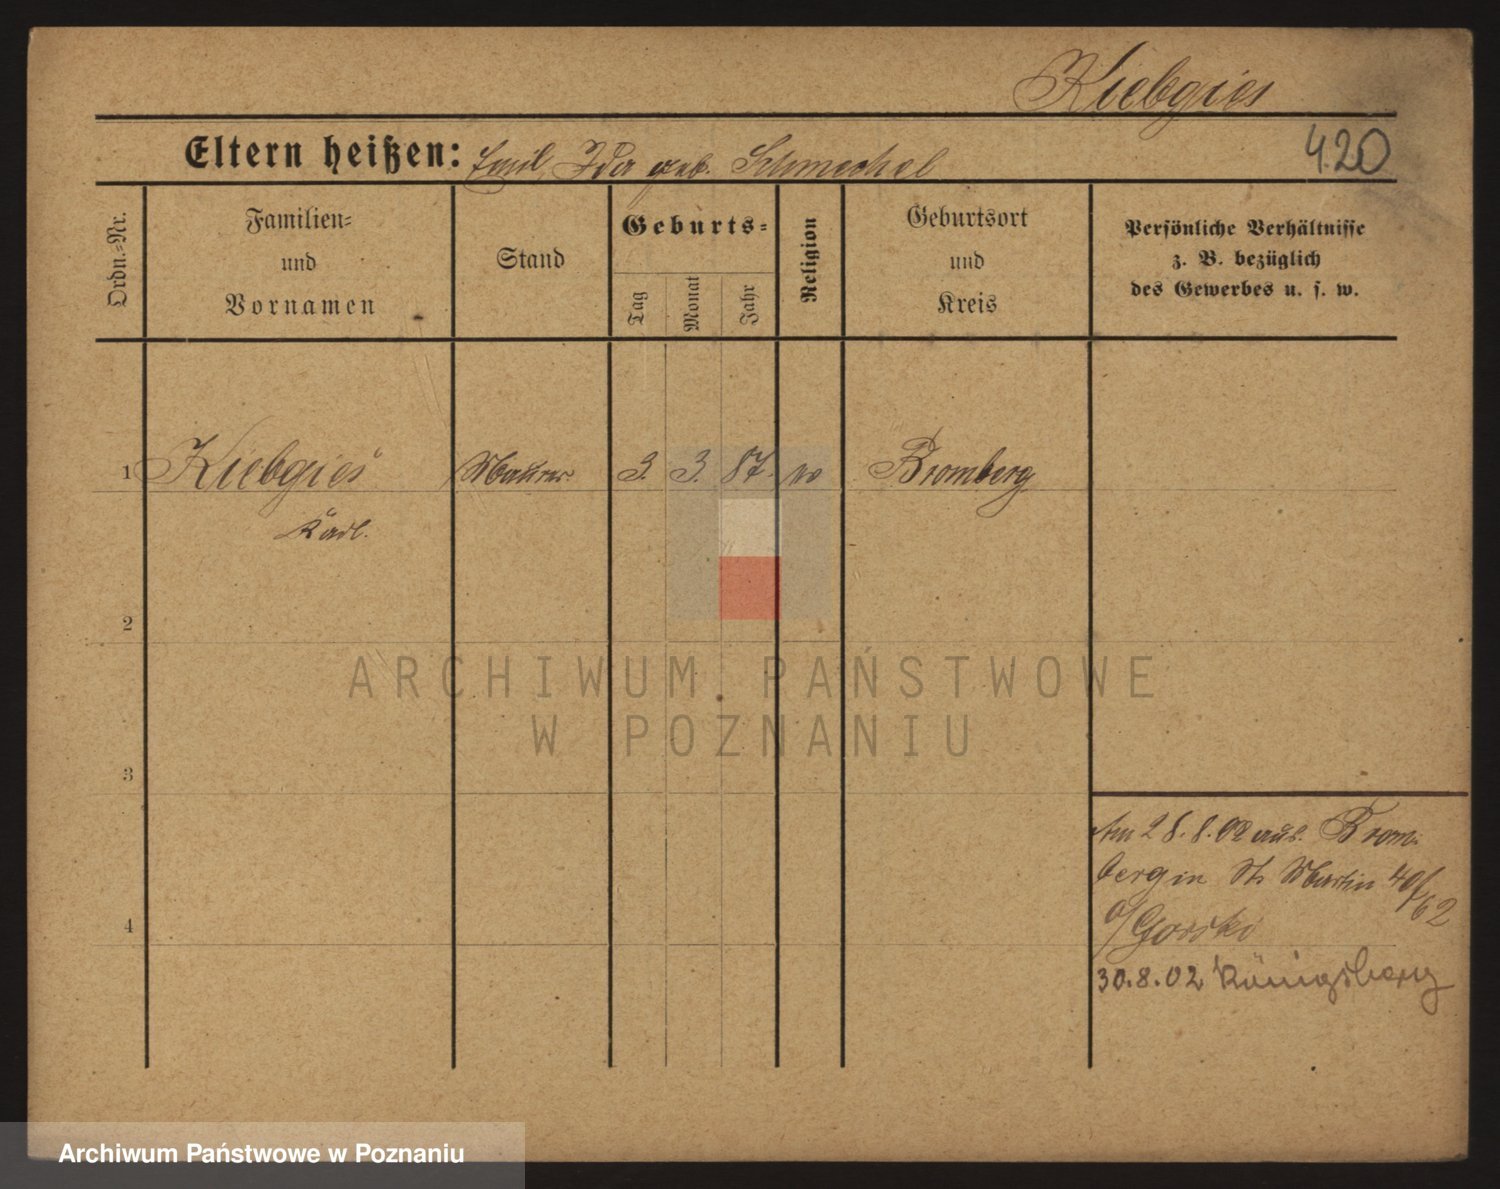 Kiebgies
Eltern heißen: Emil, Ida geb. Schmechel
420
Ordn.-Nr.
Familien-
und
Vornamen
Stand
Geburts-
Tag
Monat
Jahr
Religion
Geburtsort
und
Kreis
Persönliche Verhältnisse
z. B. bezüglich
des Gewerbes u. s. w.
1 Kiebgies Maurer 3. 3. 87. Bromberg
Karl.
2
3
4
Am 28.8.02 aus Brom-
berg in St. Martin 40/62
b/Gorski
30.8.02 Königsberg
ARCHIWUM PAŃSTWOWE
W POZNANIU
Archiwum Państwowe w Poznaniu